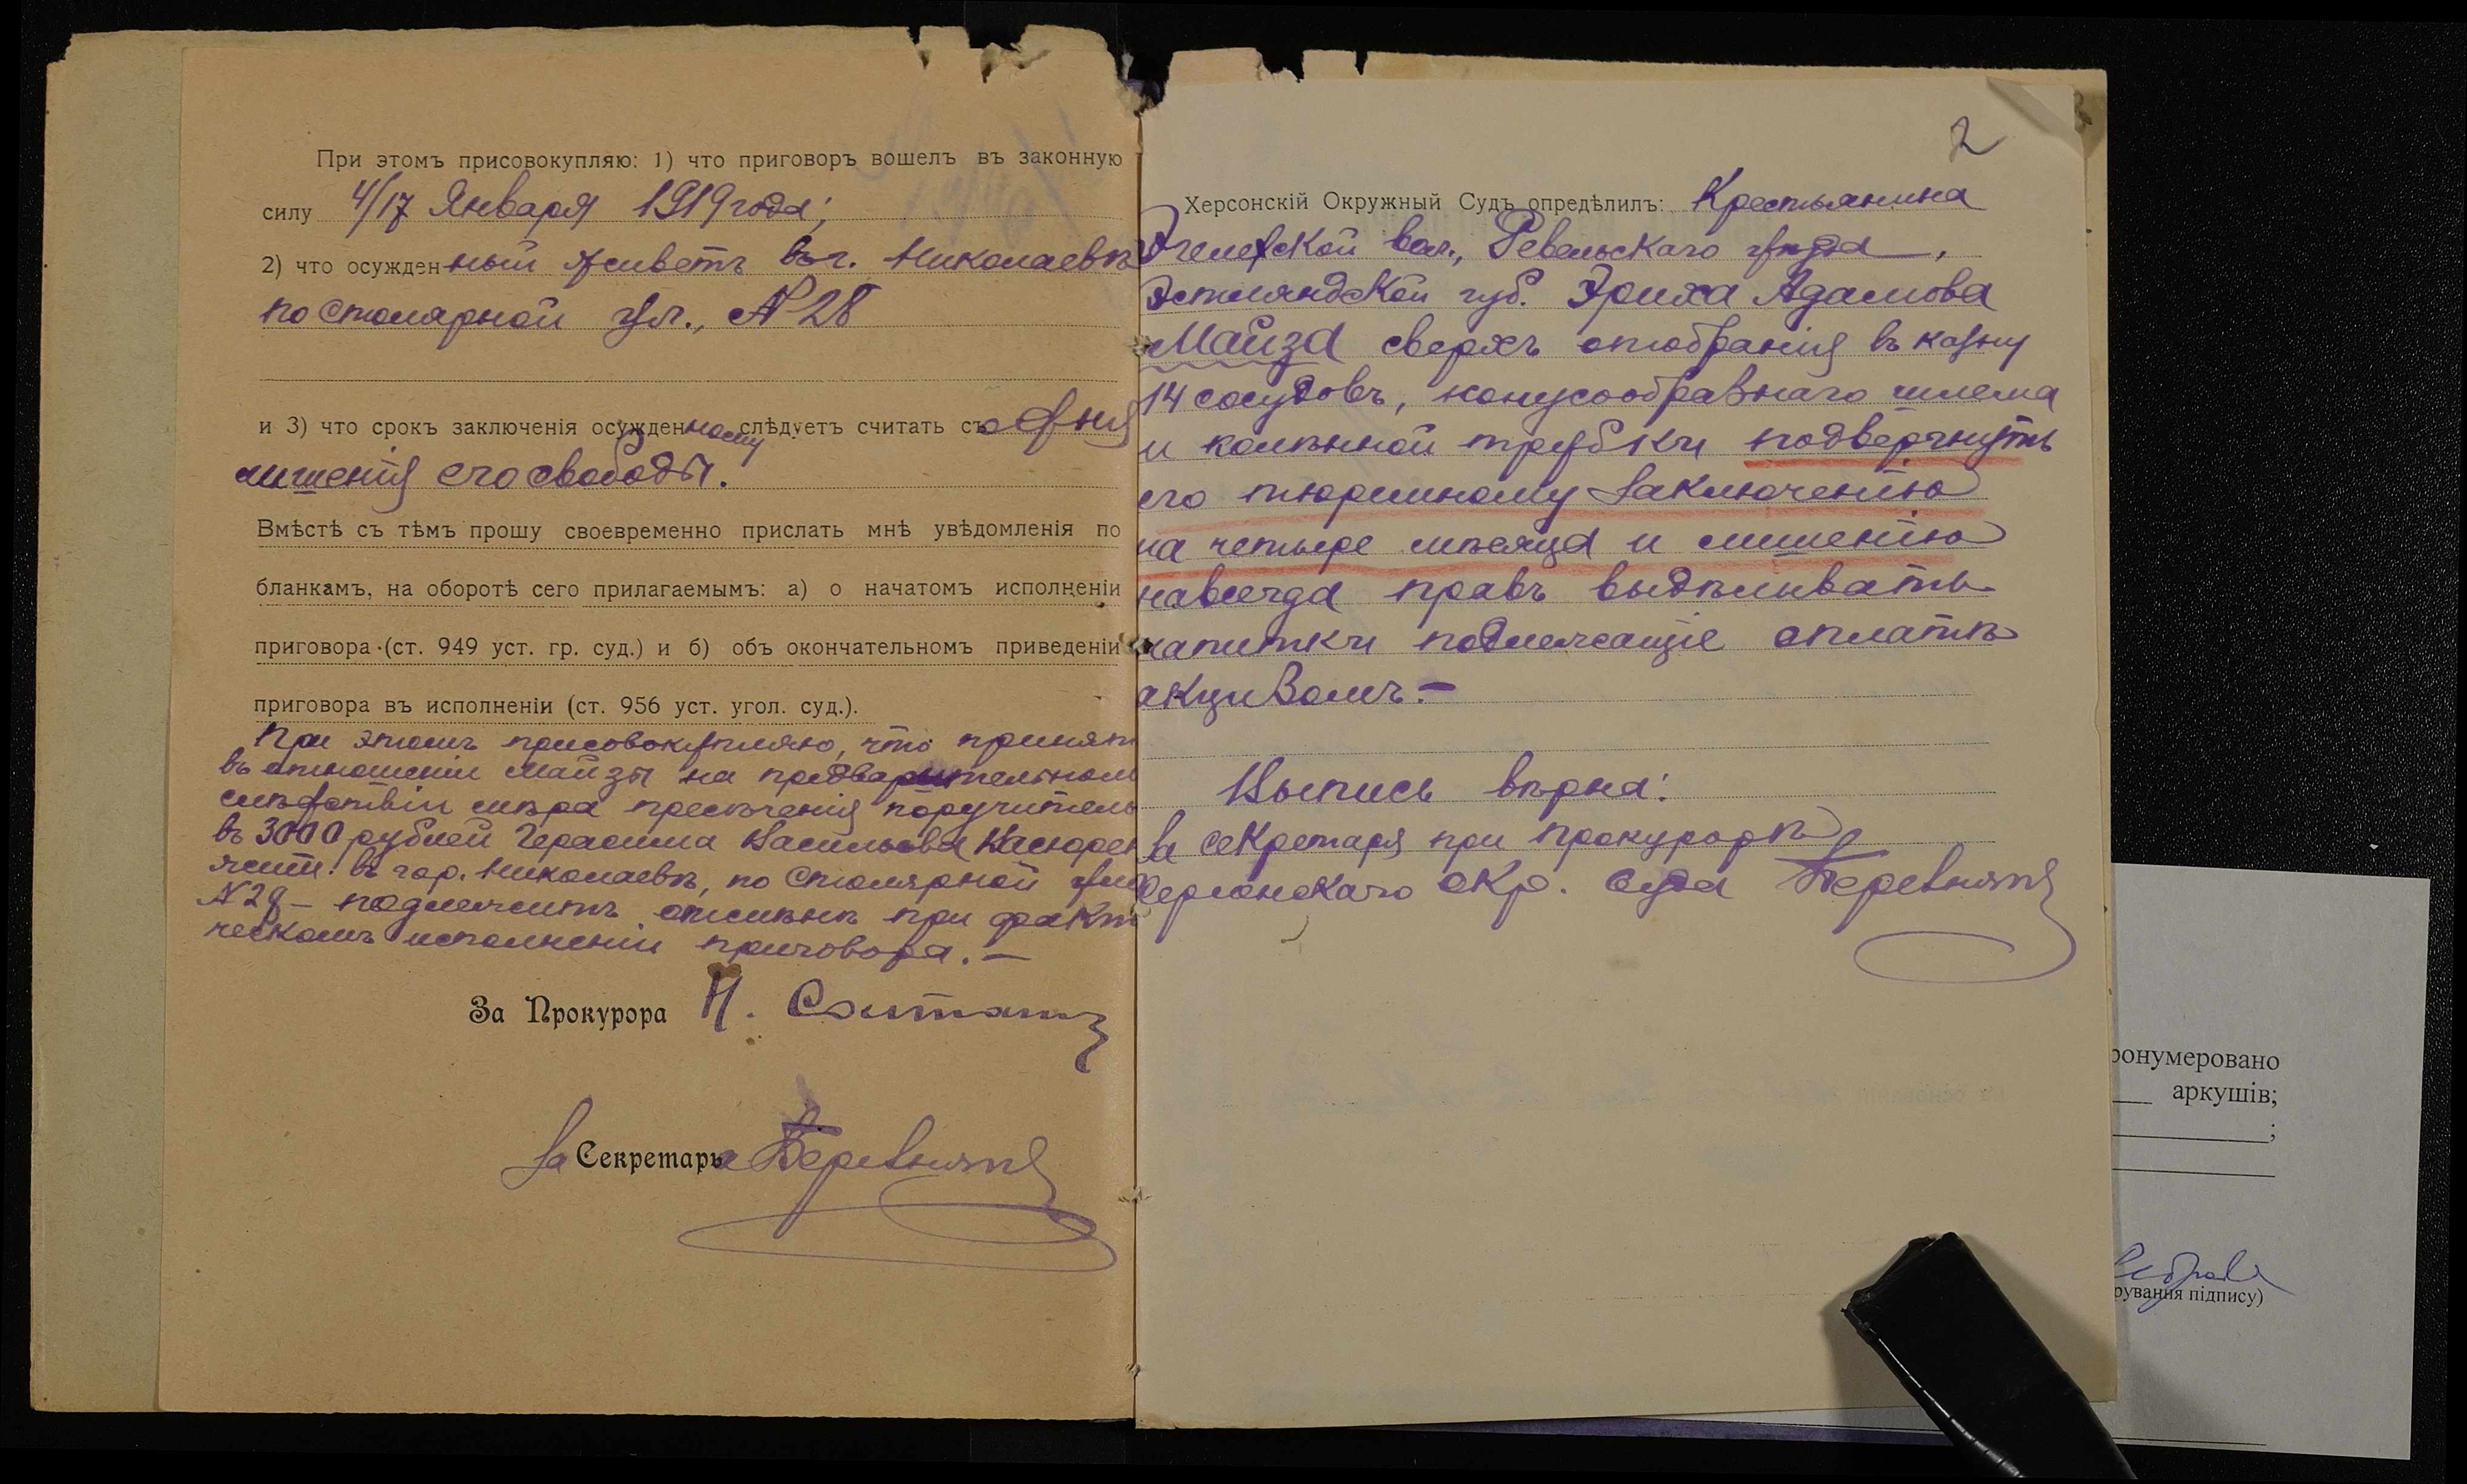 При этомъ присовокупляю: 1) что приговоръ вошелъ въ законную
силу 4/17 Января 1919 года;
2) что осужденный живетъ въ г. Николаевѣ
по Столярной ул., № 28
и 3) что срокъ заключенія осужденному слѣдуетъ считать со дня
лишенія его свободы.
Вмѣстѣ съ тѣмъ прошу своевременно прислать мнѣ увѣдомленія по
бланкамъ, на оборотѣ сего прилагаемымъ: а) о начатомъ исполненіи
приговора (ст. 949 уст. гр. суд.) и б) объ окончательномъ приведеніи
приговора въ исполненіи (ст. 956 уст. угол. суд.).
При этомъ присовокупляю, что принят
въ отношеніи Майзы на предварительном
слѣдствіи мѣра пресѣченія поручитель
въ 3000 рублей Герасима Васильева
жит. въ гор. Николаевѣ, по Столярной ули
№ 28 – подлежитъ отмѣнѣ при факт
ческомъ исполненіи приговора. –
За Прокурора Н.
За Секретаря
2
Херсонскій Окружный Судъ опредѣлилъ: Крестьянина
вол., Ревельскаго уѣзда,
Эстляндской губ. Эриха Адамова
Майза сверхъ отобранія въ казну
14 сосудовъ, конусообразнаго шлема
и колѣнной трубки подвергнуть
его тюремному заключенію
на четыре мѣсяца и лишенію
навсегда правъ выдѣлывать
напитки подлежащіе оплатѣ
акцизомъ. –
Выпись вѣрна:
За секретаря при прокурорѣ
Херсонскаго окр. суда
ронумеровано
аркушів;
;
рування підпису)